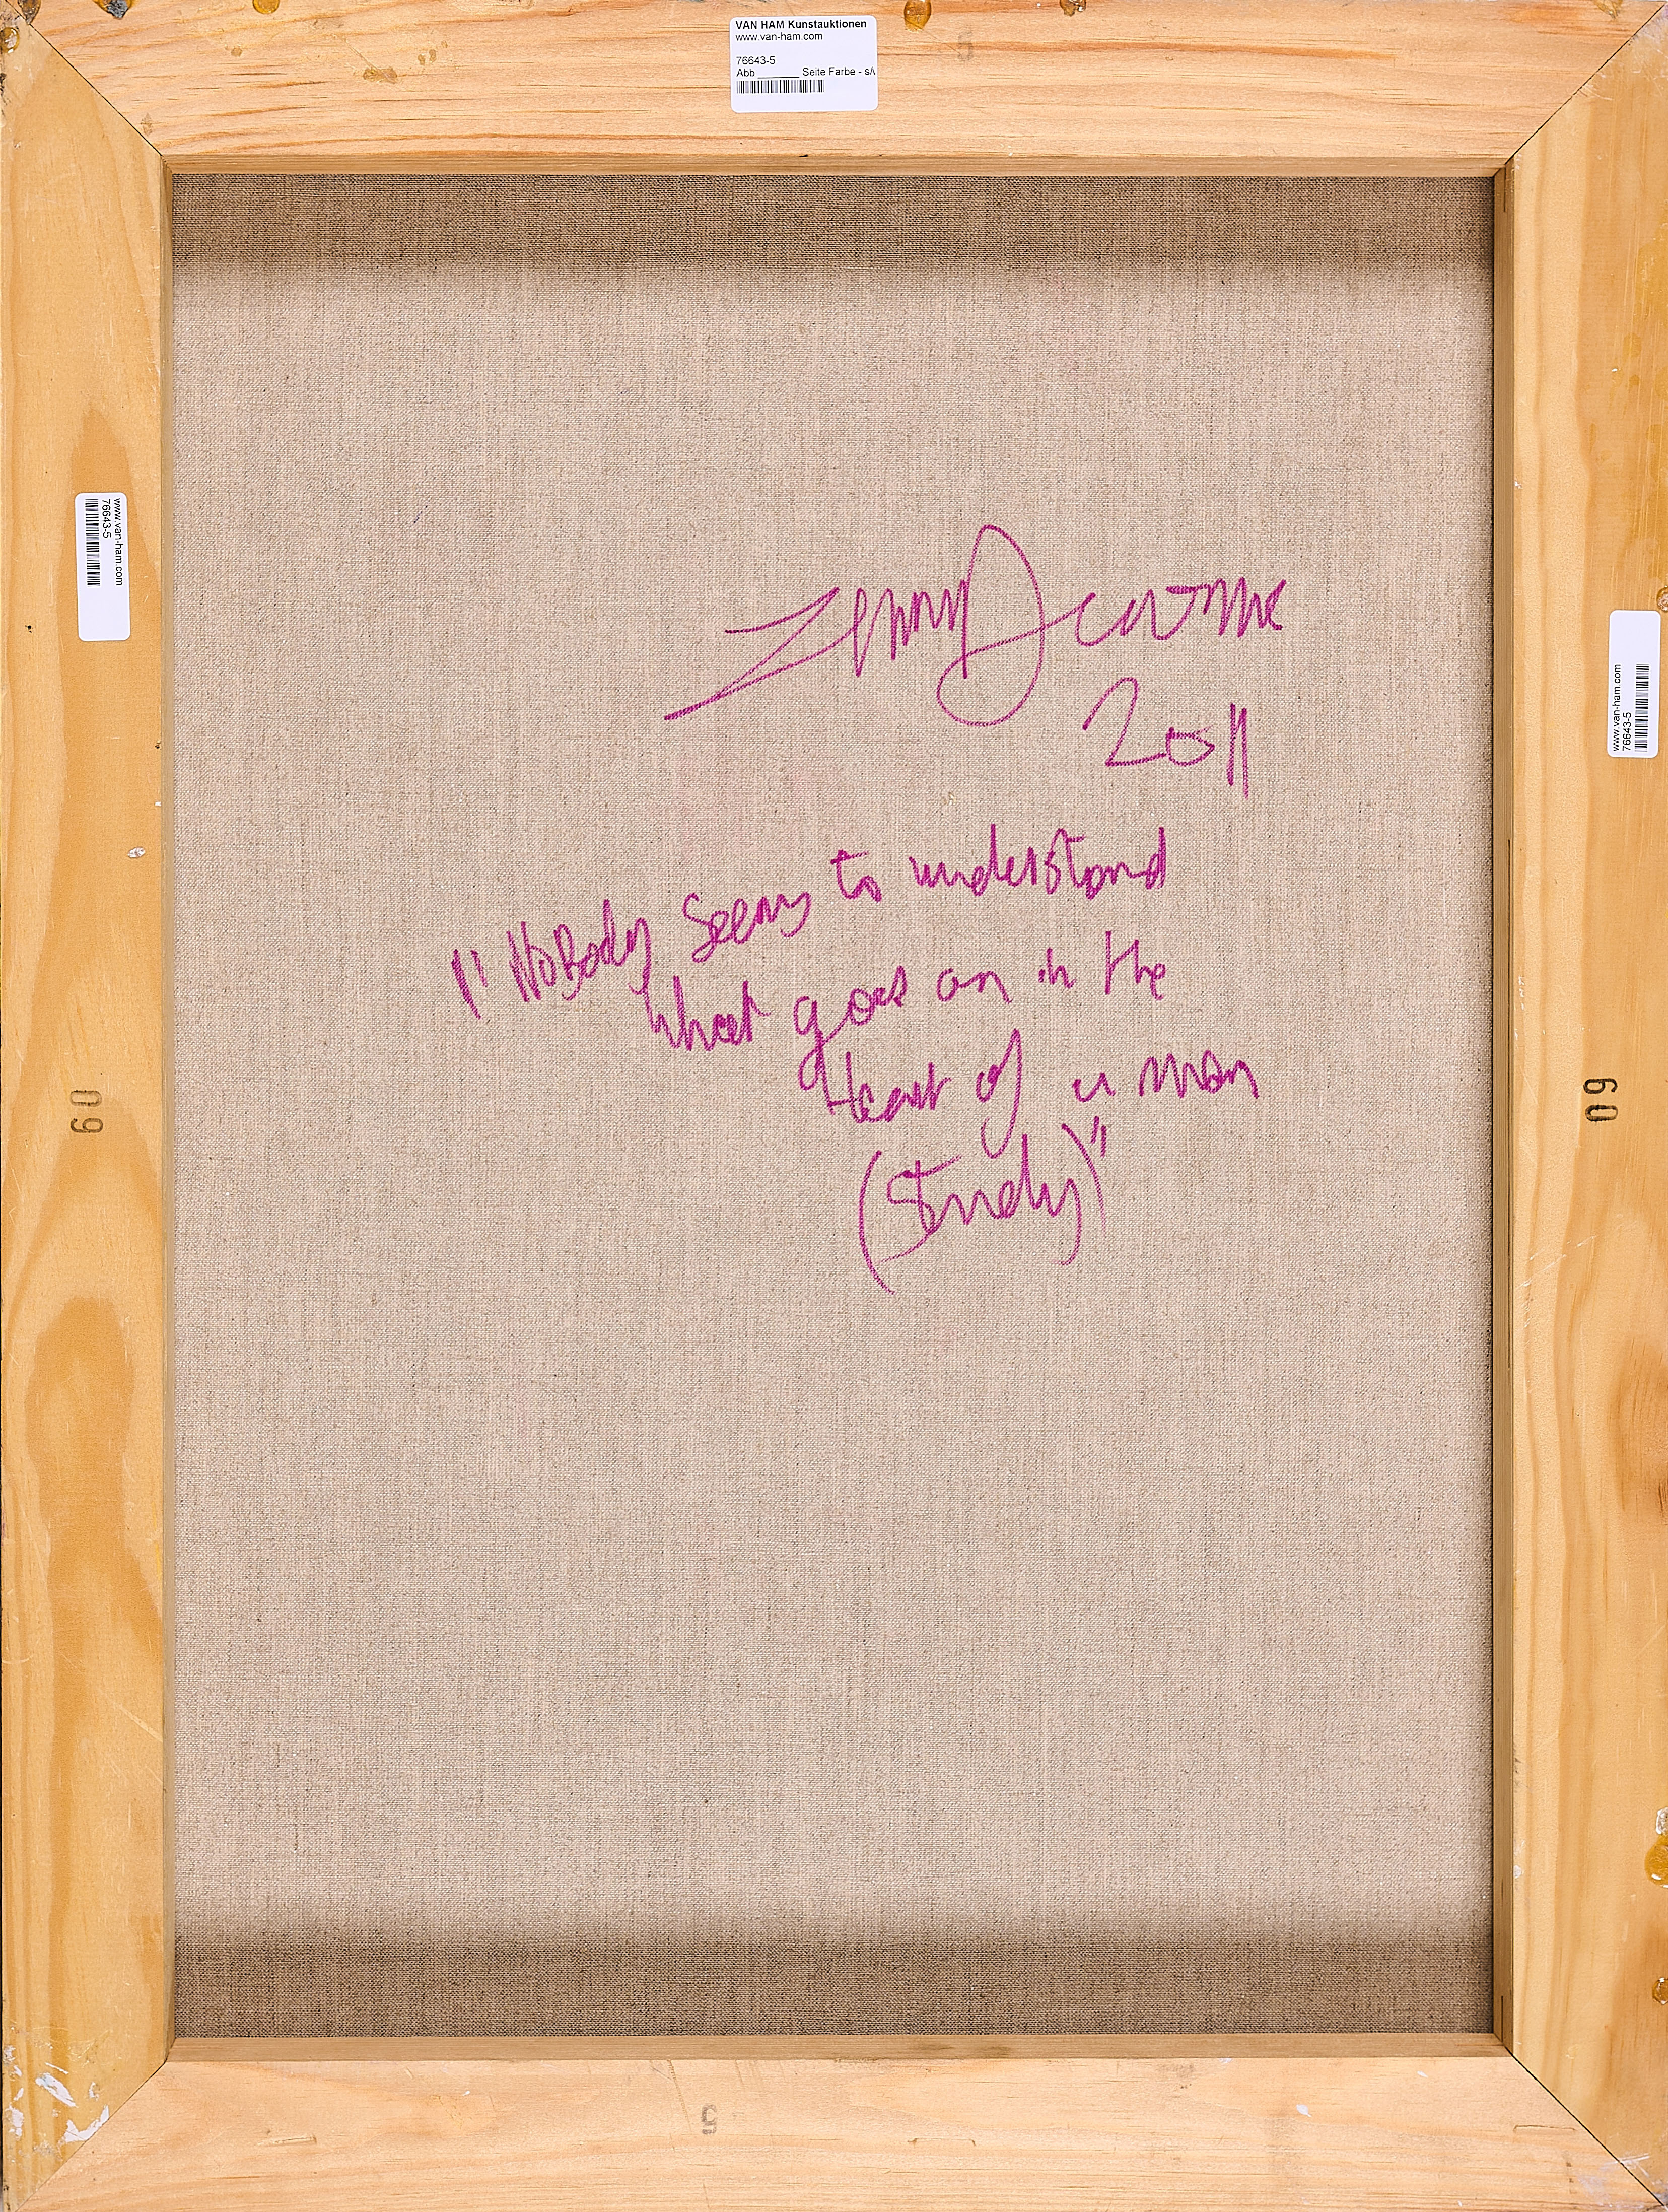 VAN HAM Kunstauktionen
www.van-ham.com
76643-5
Abb ______ Seite Farbe - s/
5
www.van-ham.com
76643-5
2011
"Nobody seems to understand
what goes on in the
Heart of a man
(Study)"
www.van-ham.com
76643-5
60
60
5